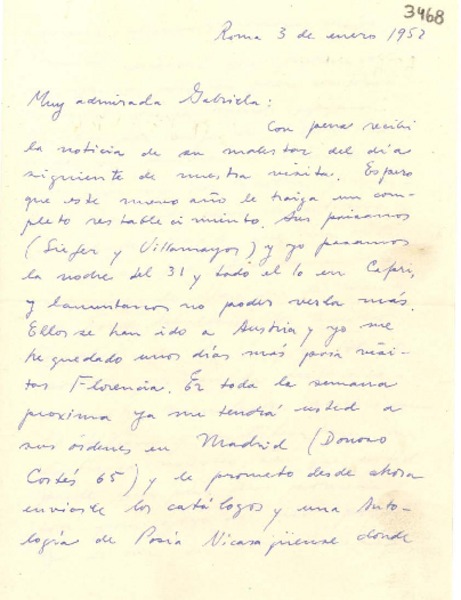 3468
Roma 3 de enero 1952
Muy admirada Gabriela:
Con pena recibí
la noticia de su malestar del día
siguiente de nuestra visita. Espero
que este nuevo año le traiga un com-
pleto restablecimiento. Sus paisanos
(Siefer y Villamayor) y yo pasamos
la noche del 31 y todo el 1o en Capri,
y lamentamos no poder verla más.
Ellos se han ido a Austria y yo me
he quedado unos días más para visi-
tar Florencia. En toda la semana
proxima ya me tendrá usted a
sus órdenes en Madrid (Donoso
Cortés 65) y le prometo desde ahora
enviarle los catálogos y una Anto-
logía de Poesía Nicaragüense donde